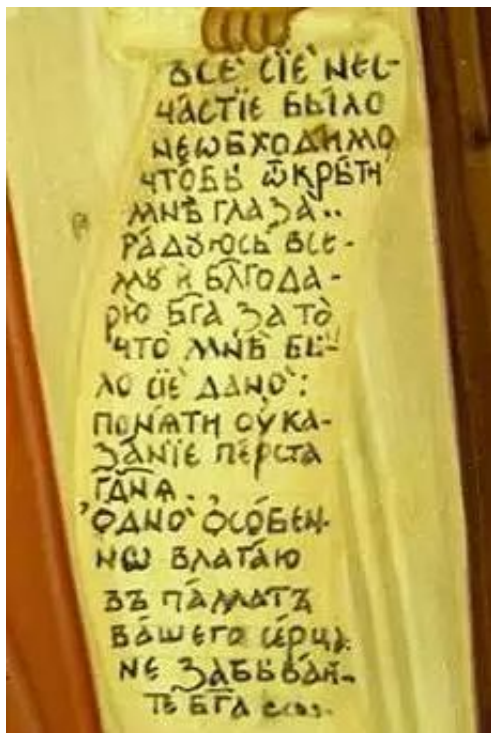 ВСЀ СЇЀ НЕС-
ЧА́СТЇЕ БЫ́ЛО
НЕѠБХОДИ́МО
ЧТО́БЫ Ѿ҆КРЫ́ТИ
МНѢ̀ ГЛАЗА̀..
РА́ДУЮСЬ ВСЕ-
МУ̀ И҆ БЛ҃ГОДА-
РЮ̀ БГ҃А ЗА ТО̀
ЧТО̀ МНѢ̀ БЫ-
ЛО СЇЀ ДАНО̀:
ПОНѦ́ТИ ОУ҆КА-
ЗА́НЇЕ ПЕ́РСТА
ГДⷭ҇НѦ.
ѺДНО̀ Ѻ҆СО́БЕН-
НѠ ВЛАГА́Ю
ВЪ ПА́МАТЬ
ВА́ШЕГО СЕ́РЦА:
НЕ ЗАБЫВА́Й-
ТЕ БГ҃А